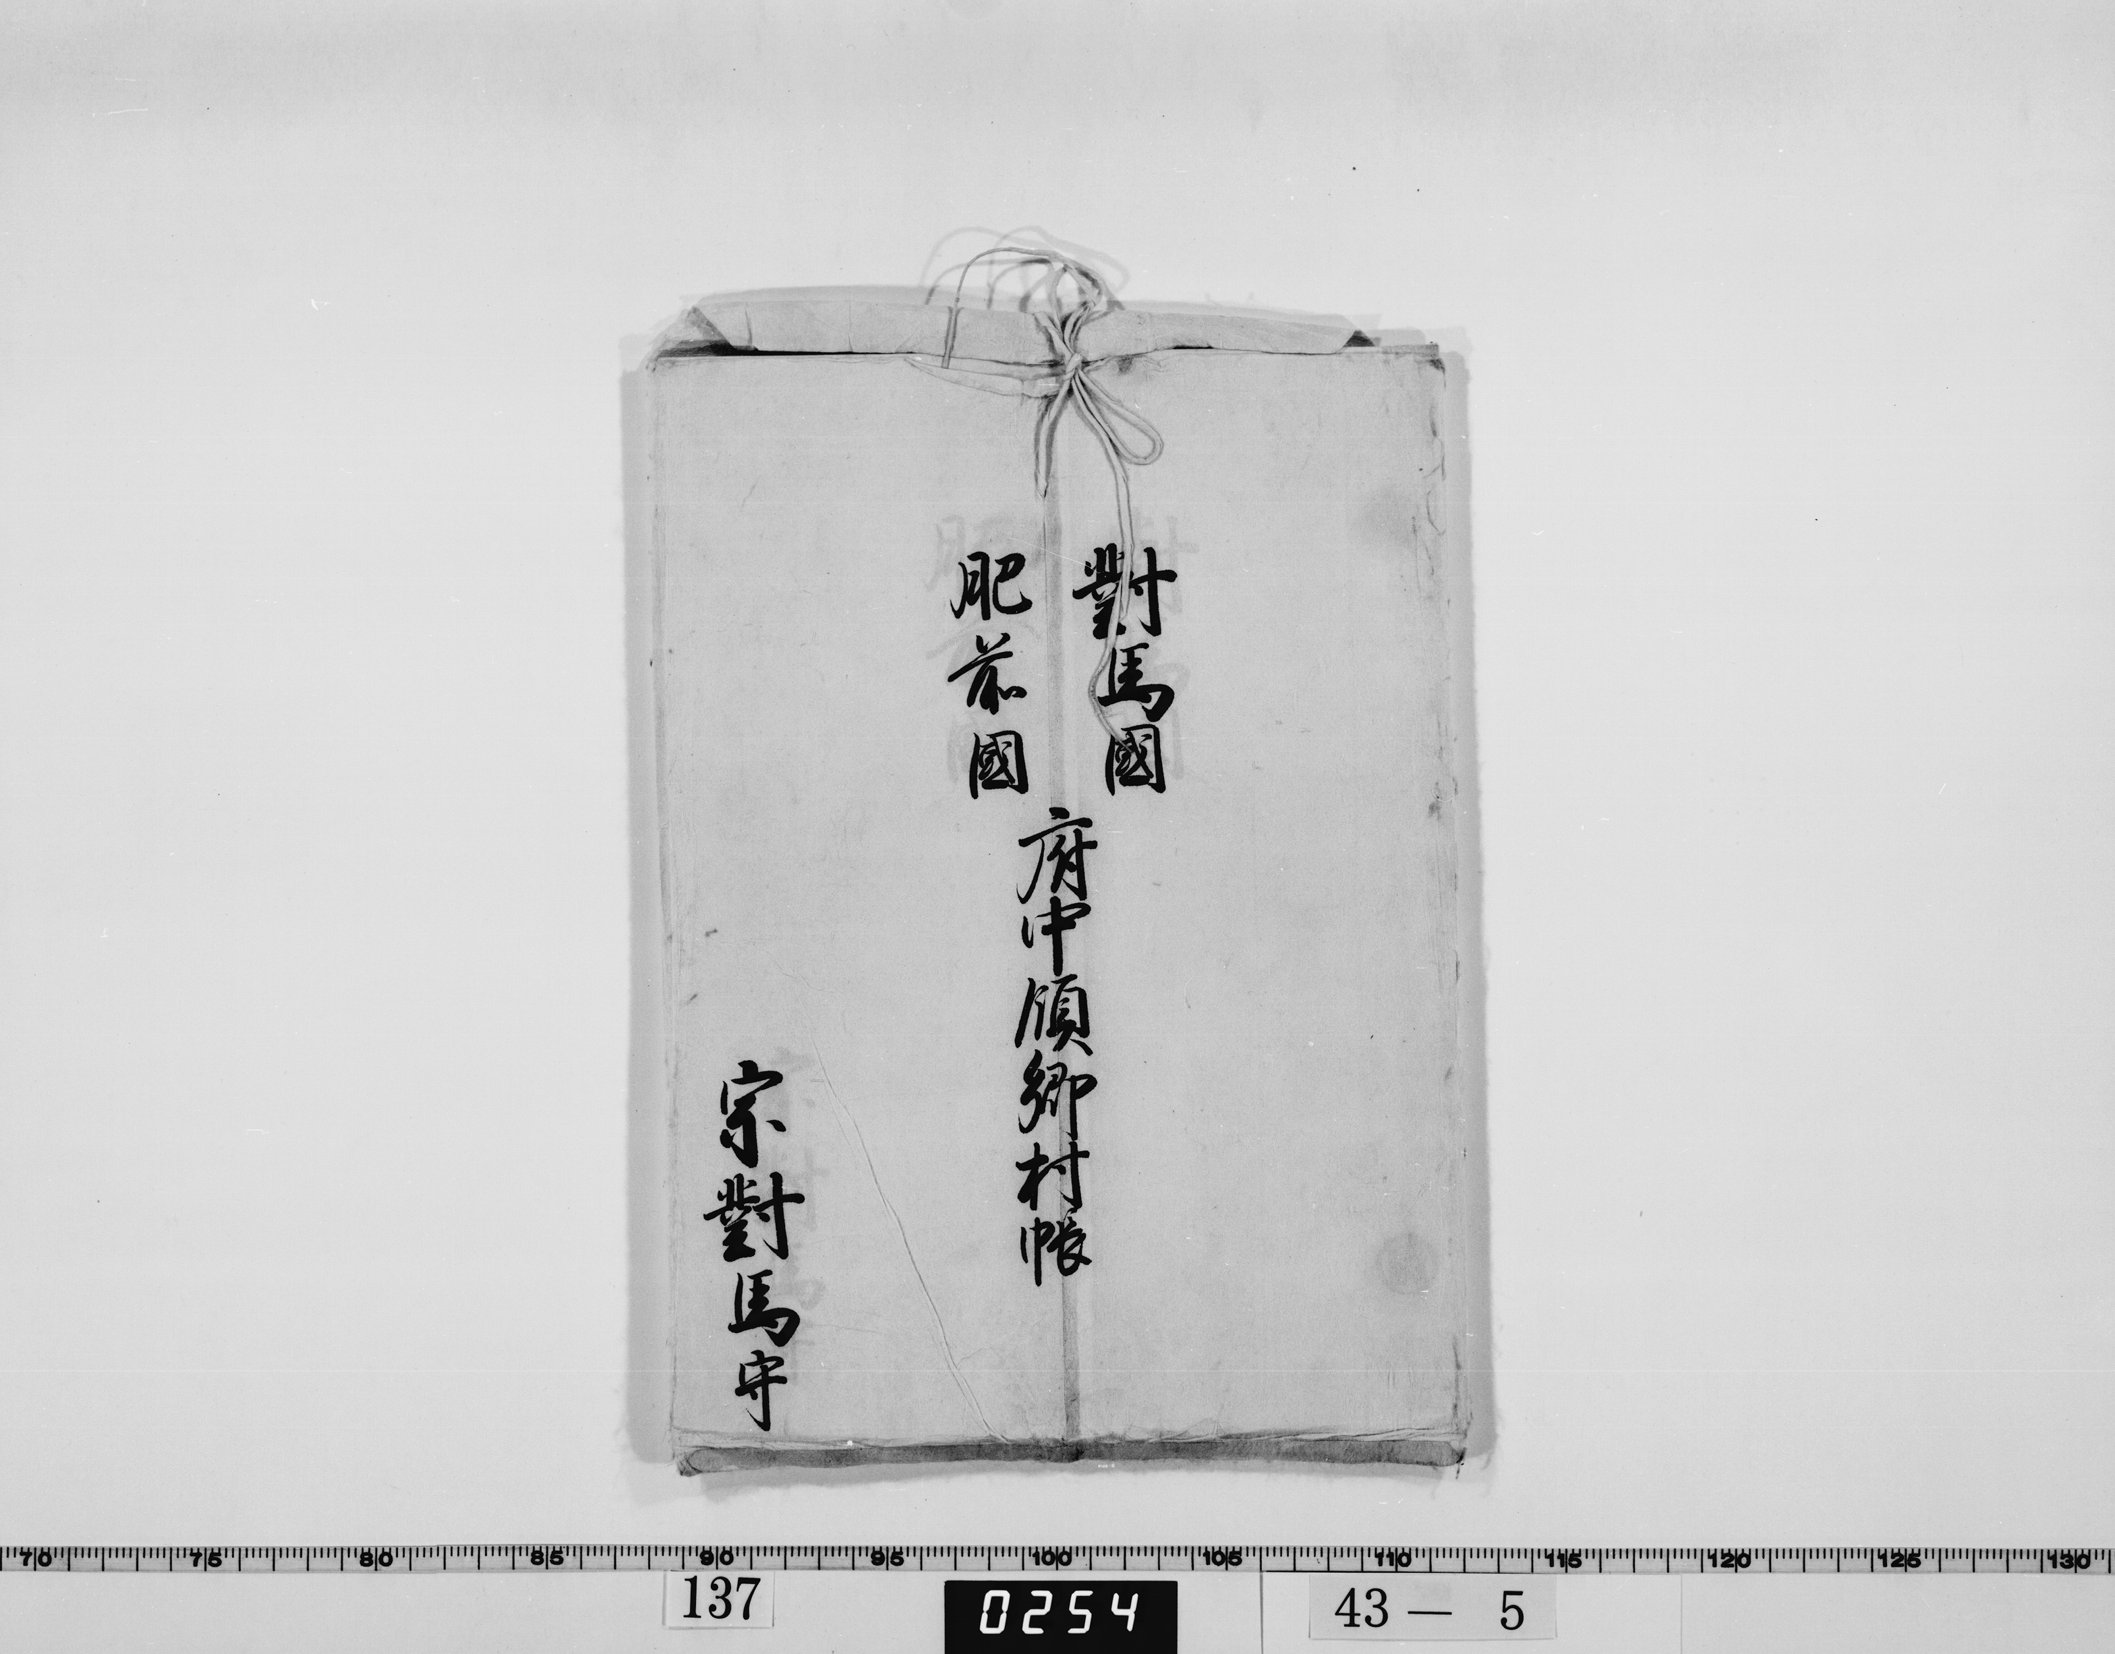 對馬國
肥前國
府中領郷村帳
宗對馬守
70 75 80 85 90 95 100 105 110 115 120 125 130
137
0254
43 — 5